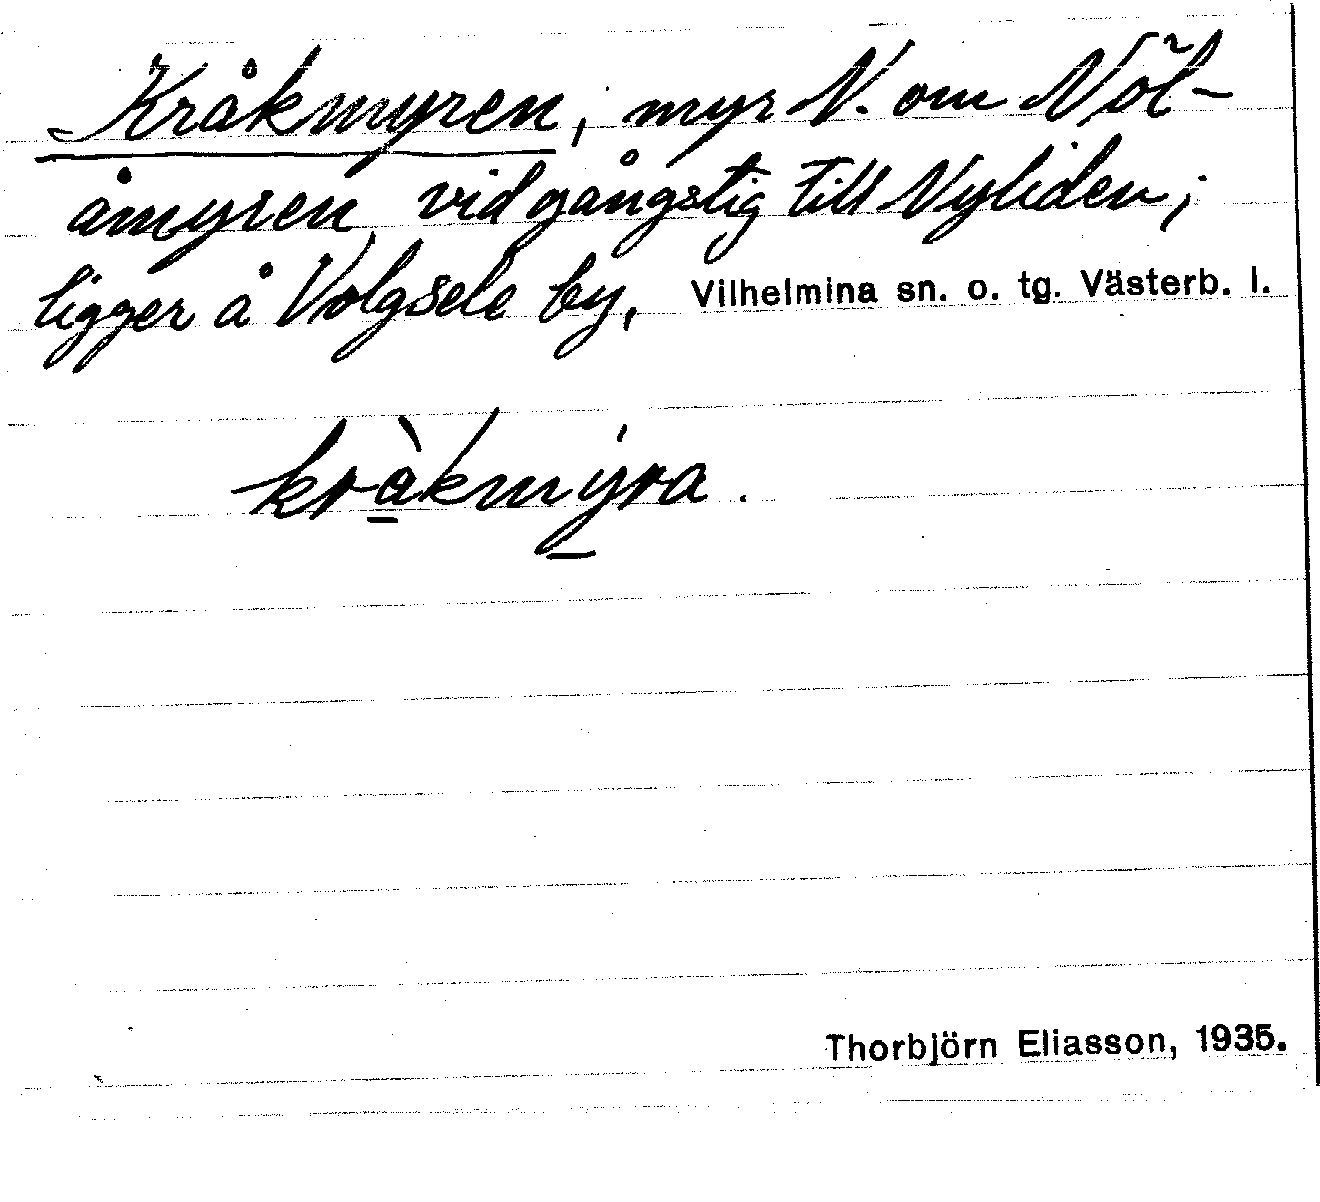 Kråkmyren, myr N. om Nöl-
åmyren vid gångstig till Nyliden;
ligger å Volgsele by, Vilhelmina sn. o. tg. Västerb. l.
kràkmýra.
Thorbjörn Eliasson, 1935.